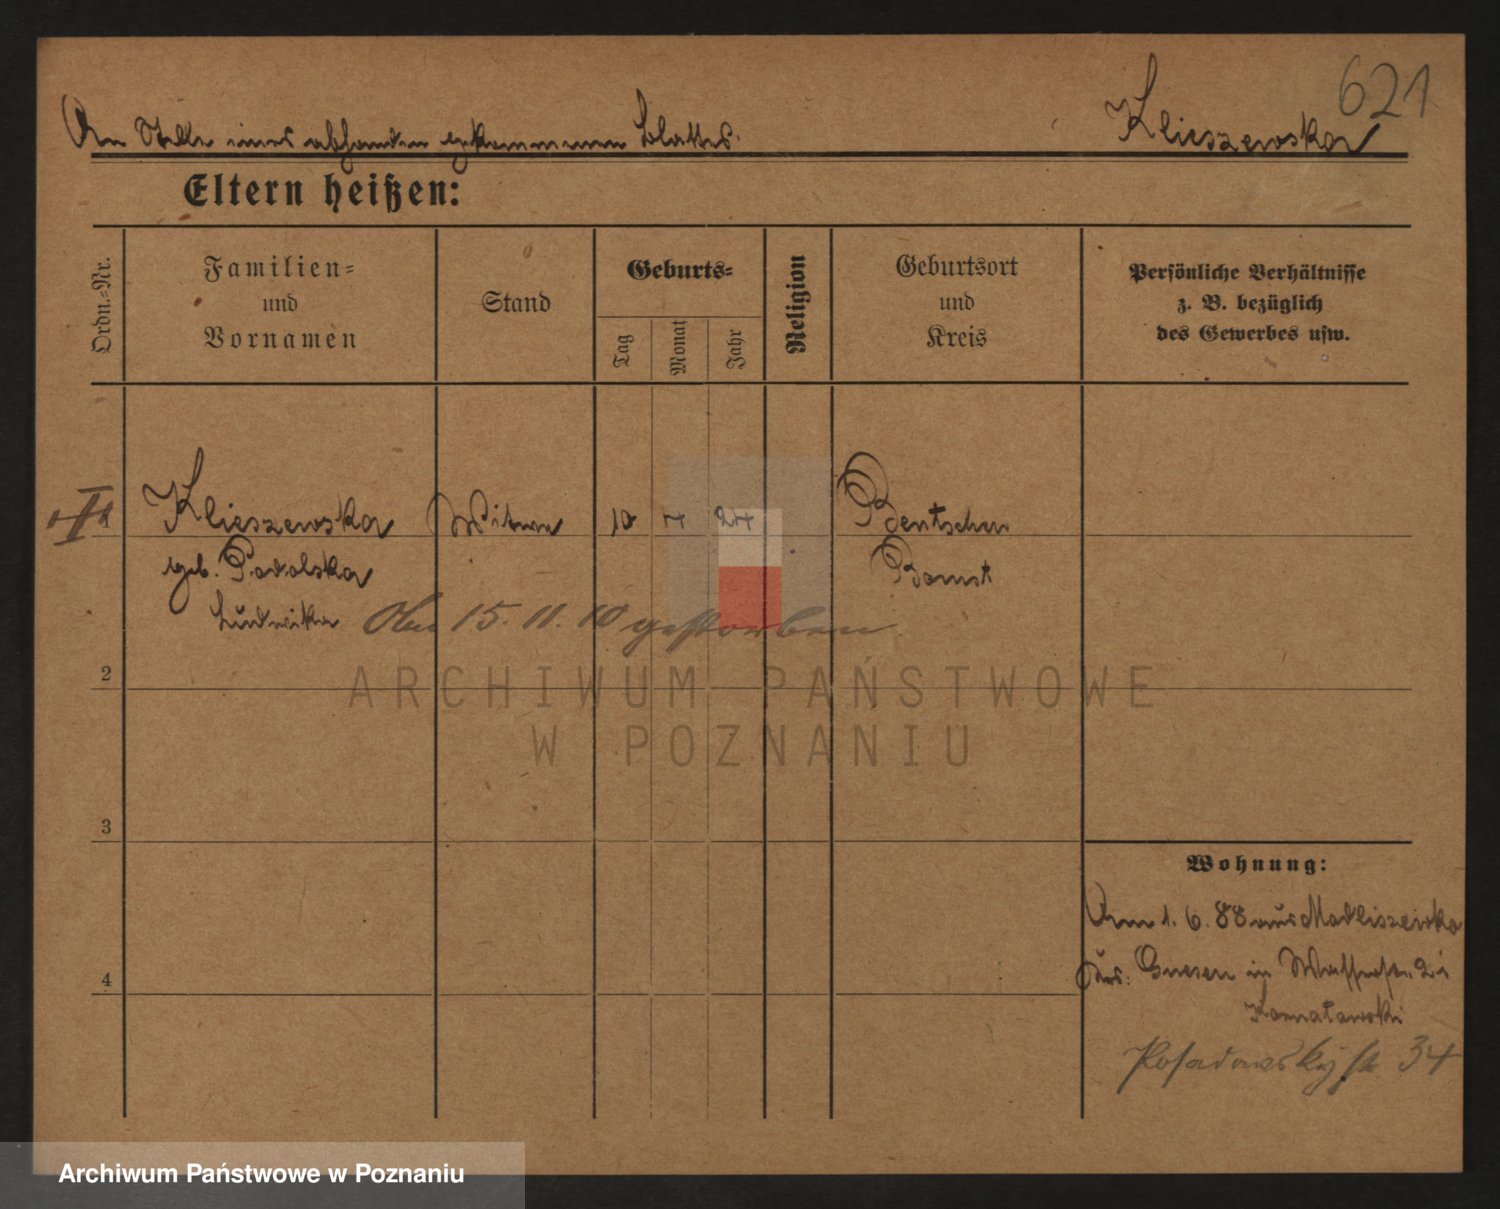 621
An Stelle eines abhanden gekommenen Blattes.
Klieszewska
Eltern heißen:
Ordn.=Nr.
Familien=
und
Vornamen
Stand
Geburts=
Tag
Monat
Jahr
Religion
Geburtsort
und
Kreis
Persönliche Verhältnisse
z. B. bezüglich
des Gewerbes usw.
1
Klieszewska Witwe 10 7 24 Bentschen
geb. Podolska Bomst
Ludwika
15.11.10 gestorben.
2
ARCHIWUM PAŃSTWOWE
W POZNANIU
3
Wohnung:
Am 1.6.88 aus Modliszewko
Krs. Gnesen in Wasserstr. 2
4
Kornatowski
Posadowskystr 34
Archiwum Państwowe w Poznaniu